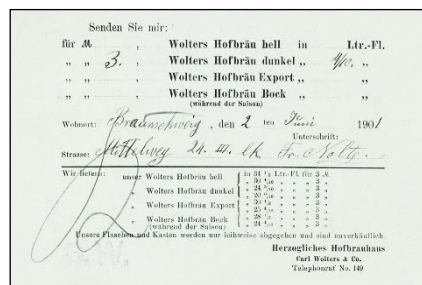 Senden Sie mir:
für M. , Wolters Hofbräu hell in Ltr.-Fl.
„ „ 3. , Wolters Hofbräu dunkel „ 4/10. „
„ „ , Wolters Hofbräu Export „ „
„ „ , Wolters Hofbräu Bock „ „
(während der Saison)
Wohnort: Braunschweig, den 2 ten Juni 1901
Unterschrift:
Strasse: Mittelweg 24. III. lk Fr. Nolte.
Wir liefern: unser Wolters Hofbräu hell in 34 Ltr.-Fl. für 3 M.
„ Wolters Hofbräu dunkel
„ Wolters Hofbräu Export
„ Wolters Hofbräu Bock
(während der Saison)
Unsere Flaschen und Kasten werden nur leihweise abgegeben und sind unverkäuflich.
Herzogliches Hofbrauhaus
Carl Wolters & Co.
Telephonruf No. 149